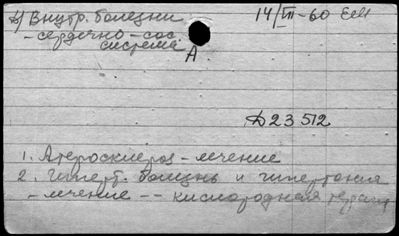 в) Внутр. болезни 14/III-60 Ееи
- сердечно-сос.
система
А
Д23512
1. Атеросклероз - лечение
2. Гиперт. болезнь и гипертония
- лечение -- кислородная терапия